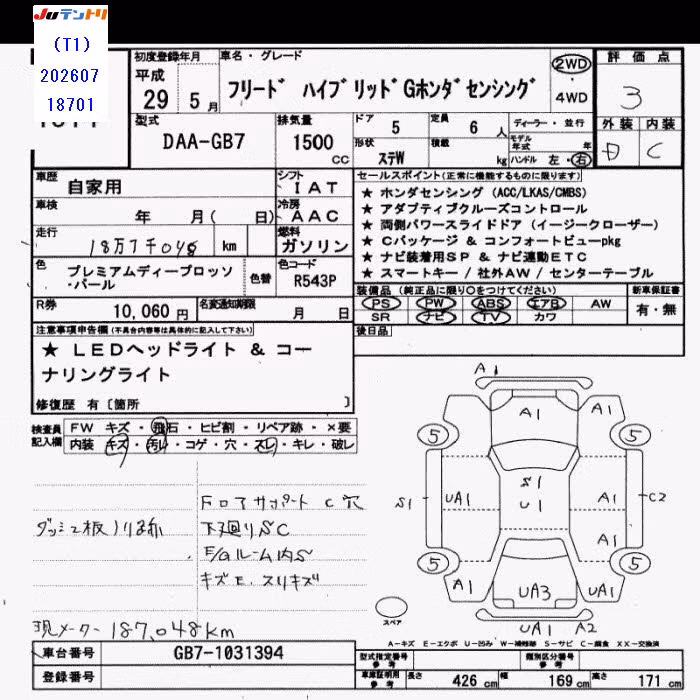 JUテントリ
(T1)
202607
18701
初度登録年月
平成
29 5月
車名・グレード
フリード ハイブリッドGホンダセンシング
2WD
4WD
評価点
3
外装 内装
D C
型式
DAA-GB7
排気量
1500
CC
ドア
5
定員
6人
ディーラー・並行
モデル年式 年
形状
ステW
積載
kg
ハンドル 左・右
車歴
自家用
シフト
IAT
車検
年 月( 日)
冷房
AAC
走行
18万7千048 km
燃料
ガソリン
色
プレミアムディープロッソ
・パール
色替
色コード
R543P
R券
10,060円
名変通知期限
月 日
セールスポイント(正常に機能するものに限ります)
★ ホンダセンシング (ACC/LKAS/CMBS)
★ アダプティブクルーズコントロール
★ 両側パワースライドドア (イージークローザー)
★ Cパッケージ & コンフォートビューpkg
★ ナビ装着用SP & ナビ連動ETC
★ スマートキー / 社外AW / センターテーブル
装備品 (純正品に限り○をつけてください)
新車保証書
PS PW ABS エアB AW
SR ナビ TV カワ
有・無
後日品
注意事項申告欄(不具合内容等は具体的に記入して下さい)
★ LEDヘッドライト & コー
ナリングライト
修復歴 有〔箇所 〕
検査員
記入欄
FW キズ・飛石・ヒビ割・リペア跡・×要
内装 キズ・汚レ・コゲ・穴・スレ・キレ・破レ
フロアサポート C 穴
下廻り S C
E/Gルーム内S
キズE. スリキズ
現メーター 187,048km
A1
A1 A1
5 5
S1
U1
S1 UA1 A1 C2
A1
5 5
A1 UA3 UA1
UA1 A2
スペア
A-キズ E-エクボ U-凹み W-補修跡 S-サビ C-腐食 XX-交換済
車台番号
GB7-1031394
登録番号
型式指定番号
参考
類別区分番号
参考
車庫証明用
参考
長さ 426 cm 幅 169 cm 高さ 171 cm